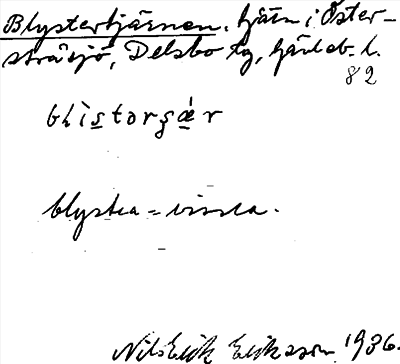 Blystertjärnen, tjärn i Öster-
stråsjö, Delsbo tg, Gävleb. l.
82
blistorsær
blystra = vissla.
Nils Erik Eriksson 1936.